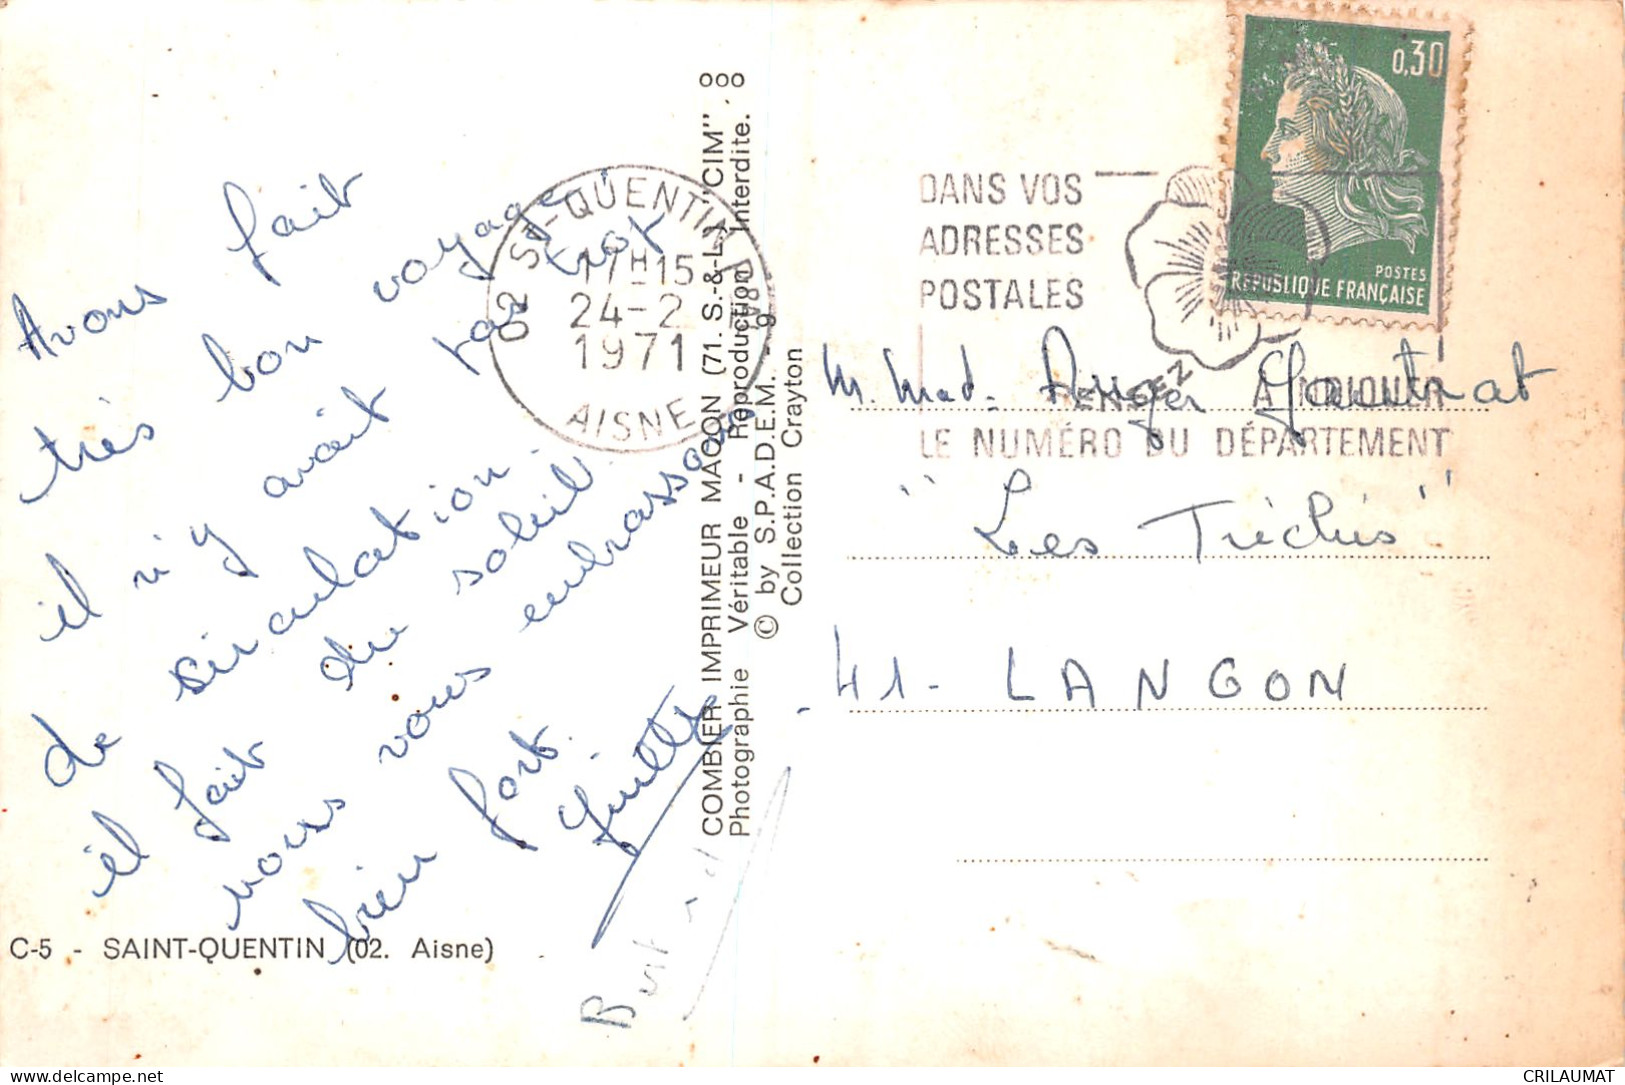 Avons fait
très bon voyage
il n'y avait pas trop
de circulation.
il fait du soleil.
nous vous embrassons
bien fort.
C-5 - SAINT-QUENTIN (02. Aisne)
COMBIER IMPRIMEUR MACON (71. S.-&-L.) "CIM"
Photographie Véritable - Reproduction Interdite.
© by S.P.A.D.E.M. - 9
Collection Crayton
02 ST-QUENTIN R.P.
17H15
24-2
1971
AISNE
DANS VOS
ADRESSES
POSTALES
PENSEZ A INDIQUER
LE NUMÉRO DU DÉPARTEMENT
0,30
POSTES
REPUBLIQUE FRANÇAISE
M. Mad. Roger
"Les Tréchis"
41- LANGON
CRILAUMAT